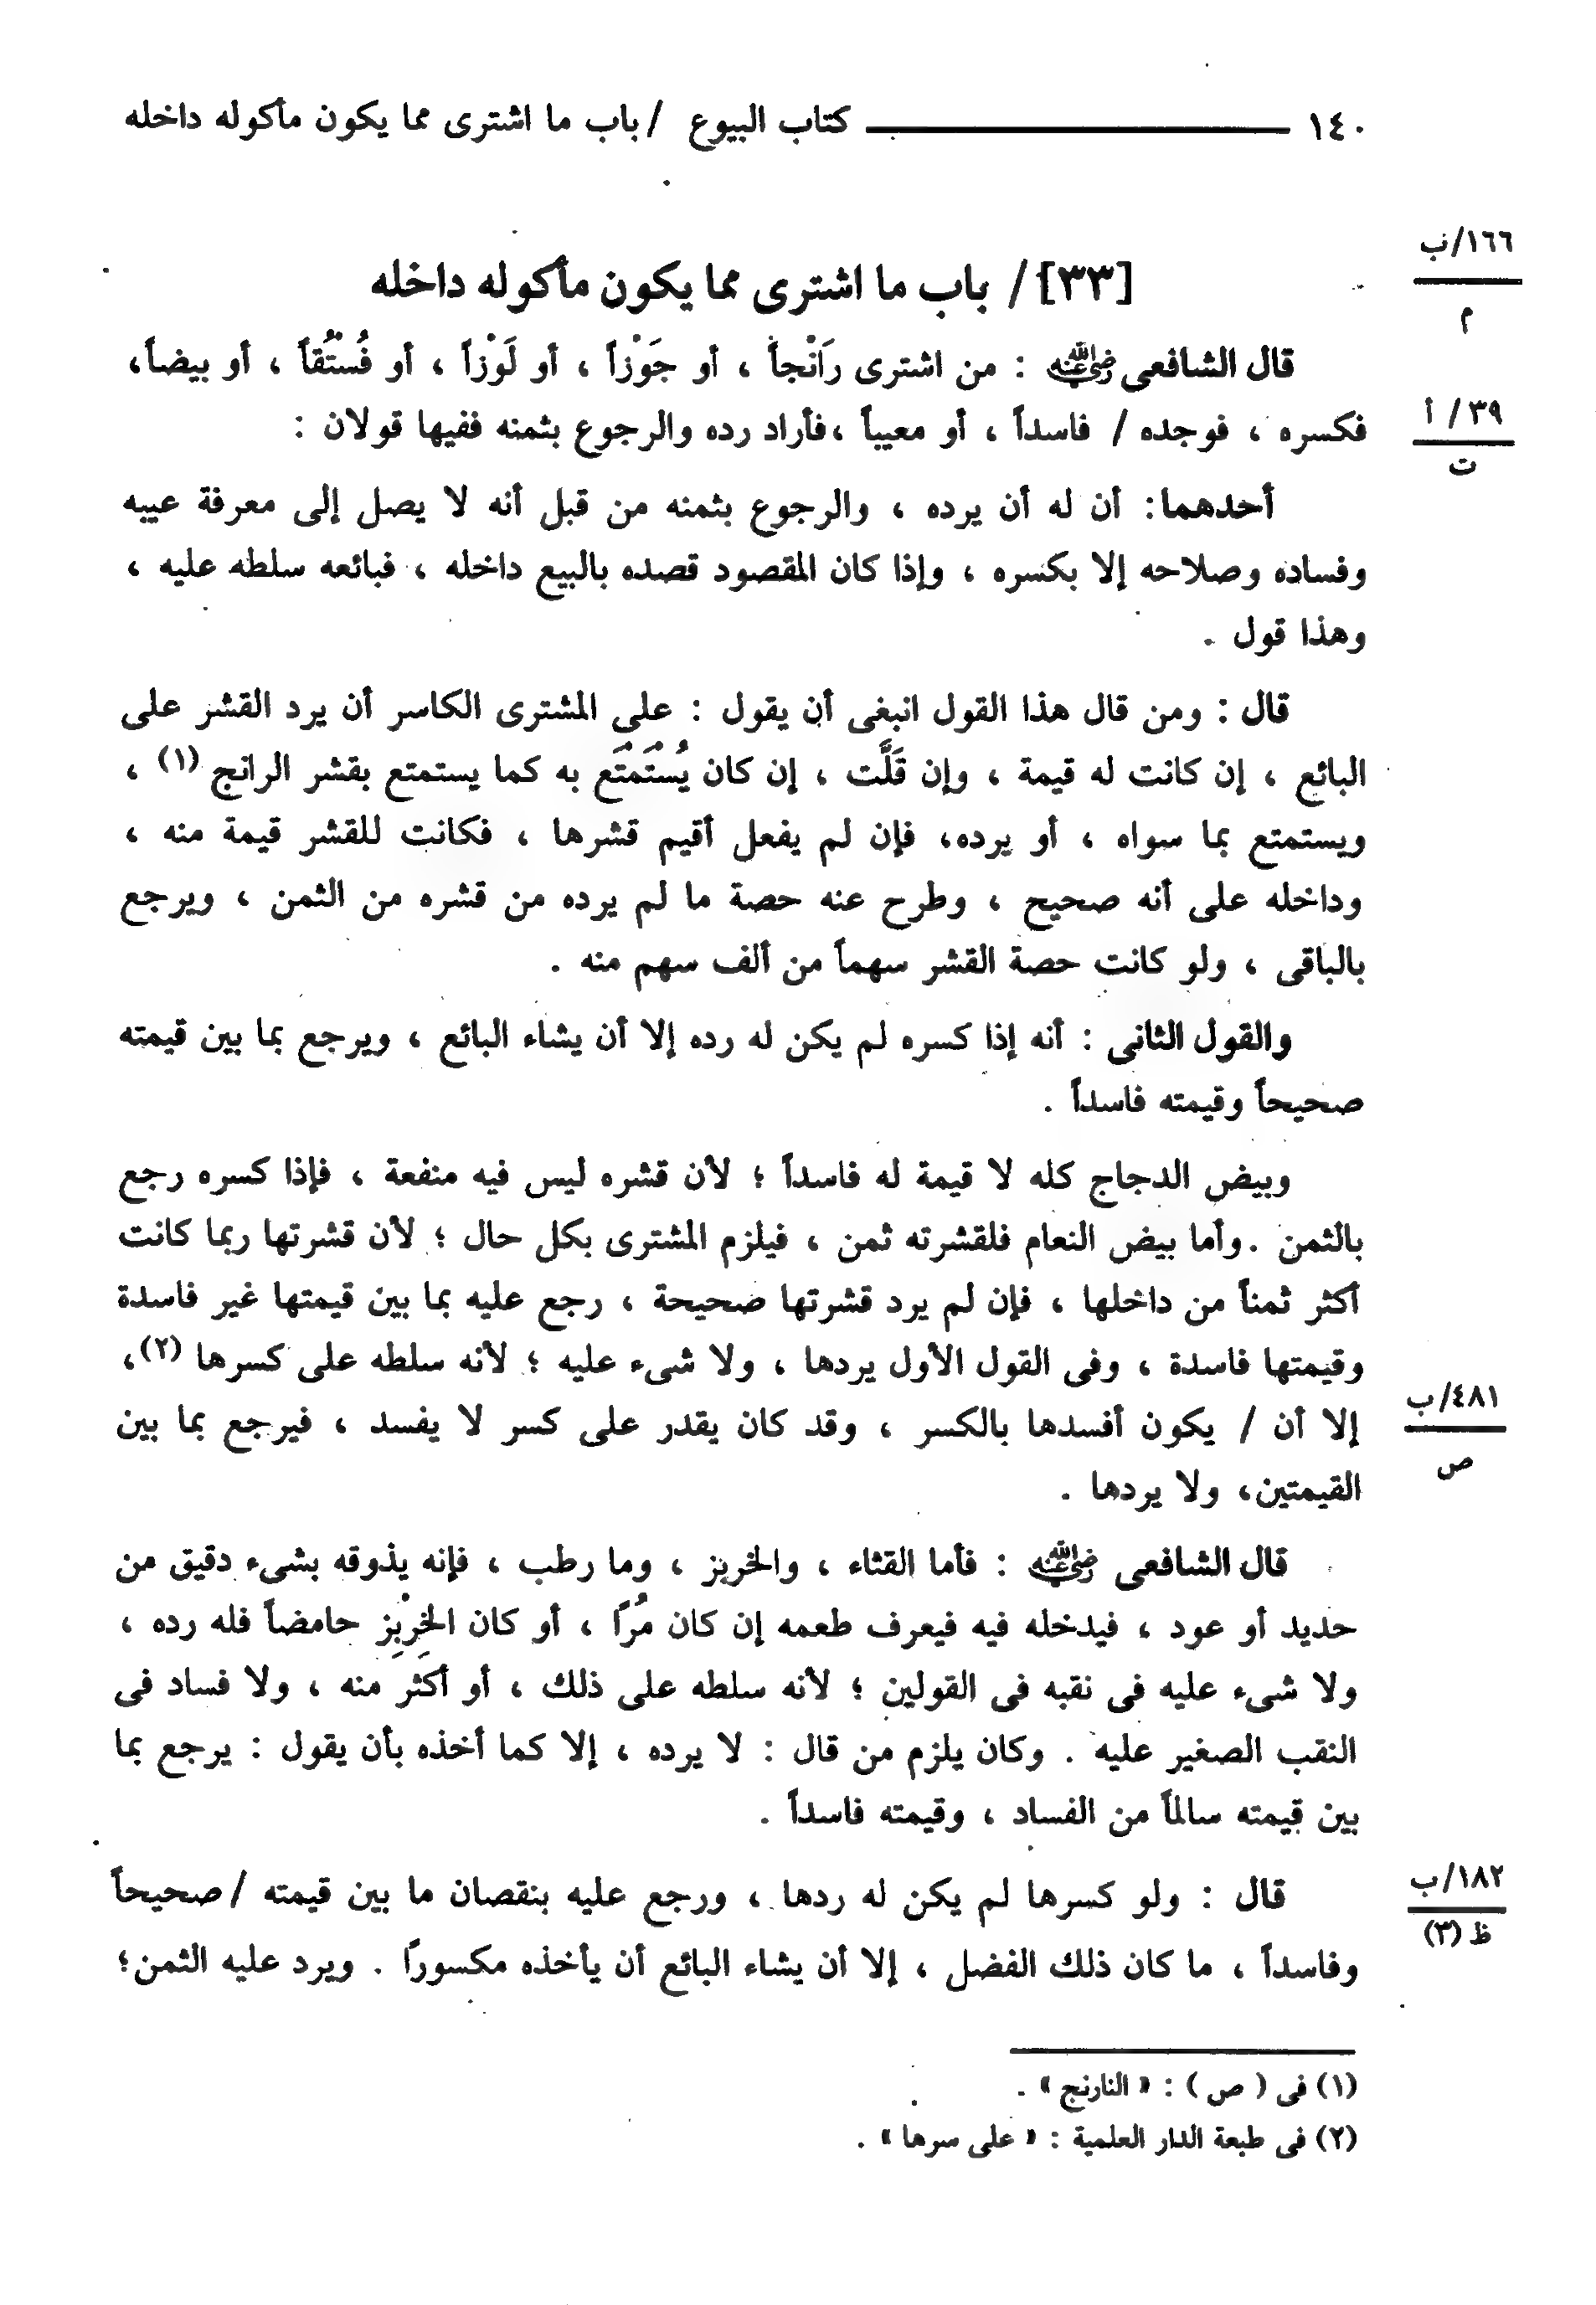 ١٤٠ كتاب البيوع / باب ما اشترى مما يكون مأكوله داخله
١٦٦/ب
م
[٣٣] / باب ما اشترى مما يكون مأكوله داخله
قال الشافعى رضي الله عنه : من اشترى رَانْجاً ، أو جَوْزاً ، أو لَوْزاً ، أو فُسْتُقاً ، أو بيضاً،
٣٩ / أ
ت
فكسره ، فوجده / فاسداً ، أو معيباً ،فأراد رده والرجوع بثمنه ففيها قولان :
أحدهما: أن له أن يرده ، والرجوع بثمنه من قبل أنه لا يصل إلى معرفة عيبه
وفساده وصلاحه إلا بكسره ، وإذا كان المقصود قصده بالبيع داخله ، فبائعه سلطه عليه ،
وهذا قول .
قال : ومن قال هذا القول انبغى أن يقول : على المشترى الكاسر أن يرد القشر على
البائع ، إن كانت له قيمة ، وإن قَلَّت ، إن كان يُسْتَمْتَع به كما يستمتع بقشر الرانج (١) ،
ويستمتع بما سواه ، أو يرده، فإن لم يفعل أقيم قشرها ، فكانت للقشر قيمة منه ،
وداخله على أنه صحيح ، وطرح عنه حصة ما لم يرده من قشره من الثمن ، ويرجع
بالباقى ، ولو كانت حصة القشر سهماً من ألف سهم منه .
والقول الثانى : أنه إذا كسره لم يكن له رده إلا أن يشاء البائع ، ويرجع بما بين قيمته
صحيحاً وقيمته فاسداً .
وبيض الدجاج كله لا قيمة له فاسداً ؛ لأن قشره ليس فيه منفعة ، فإذا كسره رجع
بالثمن .وأما بيض النعام فلقشرته ثمن ، فيلزم المشترى بكل حال ؛ لأن قشرتها ربما كانت
أكثر ثمناً من داخلها ، فإن لم يرد قشرتها صحيحة ، رجع عليه بما بين قيمتها غير فاسدة
وقيمتها فاسدة ، وفى القول الأول يردها ، ولا شىء عليه ؛ لأنه سلطه على كسرها (٢)،
٤٨١/ب
ص
إلا أن / يكون أفسدها بالكسر ، وقد كان يقدر على كسر لا يفسد ، فيرجع بما بين
القيمتين، ولا يردها .
قال الشافعى رضي الله عنه : فأما القثاء ، والخربز ، وما رطب ، فإنه يذوقه بشىء دقيق من
حديد أو عود ، فيدخله فيه فيعرف طعمه إن كان مُرًا ، أو كان الخِرْبِز حامضاً فله رده ،
ولا شىء عليه فى نقبه فى القولين ؛ لأنه سلطه على ذلك ، أو أكثر منه ، ولا فساد فى
النقب الصغير عليه . وكان يلزم من قال : لا يرده ، إلا كما أخذه بأن يقول : يرجع بما
بين قيمته سالماً من الفساد ، وقيمته فاسداً .
١٨٢/ب
ظ (٣)
قال : ولو كسرها لم يكن له ردها ، ورجع عليه بنقصان ما بين قيمته /صحيحاً
وفاسداً ، ما كان ذلك الفضل ، إلا أن يشاء البائع أن يأخذه مكسورًا . ويرد عليه الثمن؛
(١) فى ( ص ) : « النارنج » .
(٢) فى طبعة الدار العلمية : « على سرها » .